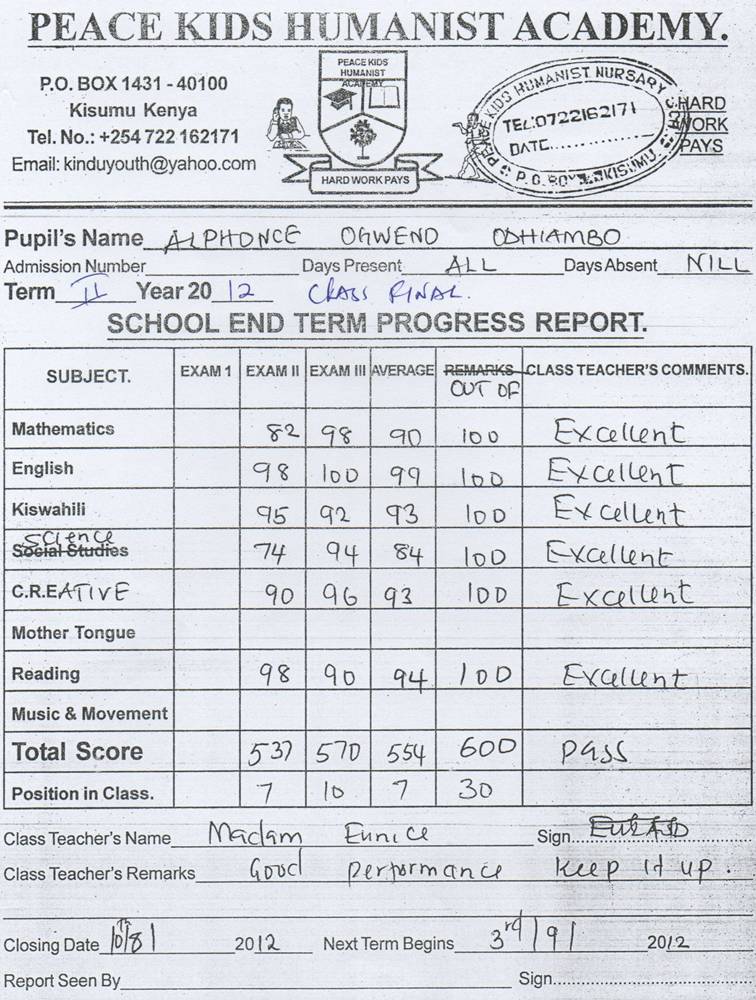 PEACE KIDS HUMANIST ACADEMY.
P.O. BOX 1431 - 40100
Kisumu Kenya
Tel. No.: +254 722 162171
Email: kinduyouth@yahoo.com
PEACE KIDS
HUMANIST
ACADEMY
HARD WORK PAYS
PEACE KIDS HUMANIST NURSARY
TEL:0722162171
DATE
P.O. BOX KISUMU
HARD
WORK
PAYS
Pupil's Name ALPHONCE OGWENO ODHIAMBO
Admission Number Days Present ALL Days Absent NILL
Term II Year 20 12 CLASS FINAL.
SCHOOL END TERM PROGRESS REPORT.
SUBJECT. EXAM 1 EXAM II EXAM III AVERAGE REMARKS OUT OF CLASS TEACHER'S COMMENTS.
Mathematics 82 98 90 100 Excellent
English 98 100 99 100 Excellent
Kiswahili 95 92 93 100 Excellent
Science
Social Studies 74 94 84 100 Excellent
C.R.EATIVE 90 96 93 100 Excellent
Mother Tongue
Reading 98 90 94 100 Excellent
Music & Movement
Total Score 537 570 554 600 pass
Position in Class. 7 10 7 30
Class Teacher's Name Madam Eunice Sign.
Class Teacher's Remarks Good performance keep it up.
Closing Date 10th/8/ 2012 Next Term Begins 3rd/9/ 2012
Report Seen By Sign.